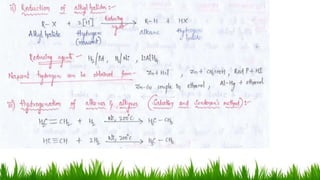 ii) Reduction of alkyl halides :-
R-X + 2[H] Reducing agent → R-H + HX
Alkyl halide Hydrogen (nascent) Alkane Hydrogen halide
Reducing agent - H₂/Pd, H₂/Ni, LiAlH₄
Nascent hydrogen can be obtained from - Zn + HCl, Zn + CH₃COOH, Red P + HI
Zn-Cu couple in ethanol, Al-Hg + ethanol
iii) Hydrogenation of alkenes & alkynes (Sabatier and Senderen's method) :-
CH₂ + H₂ Ni, 200°C → H₃C-CH₃
HC≡CH + 2H₂ Ni, 200°C → H₃C-CH₃